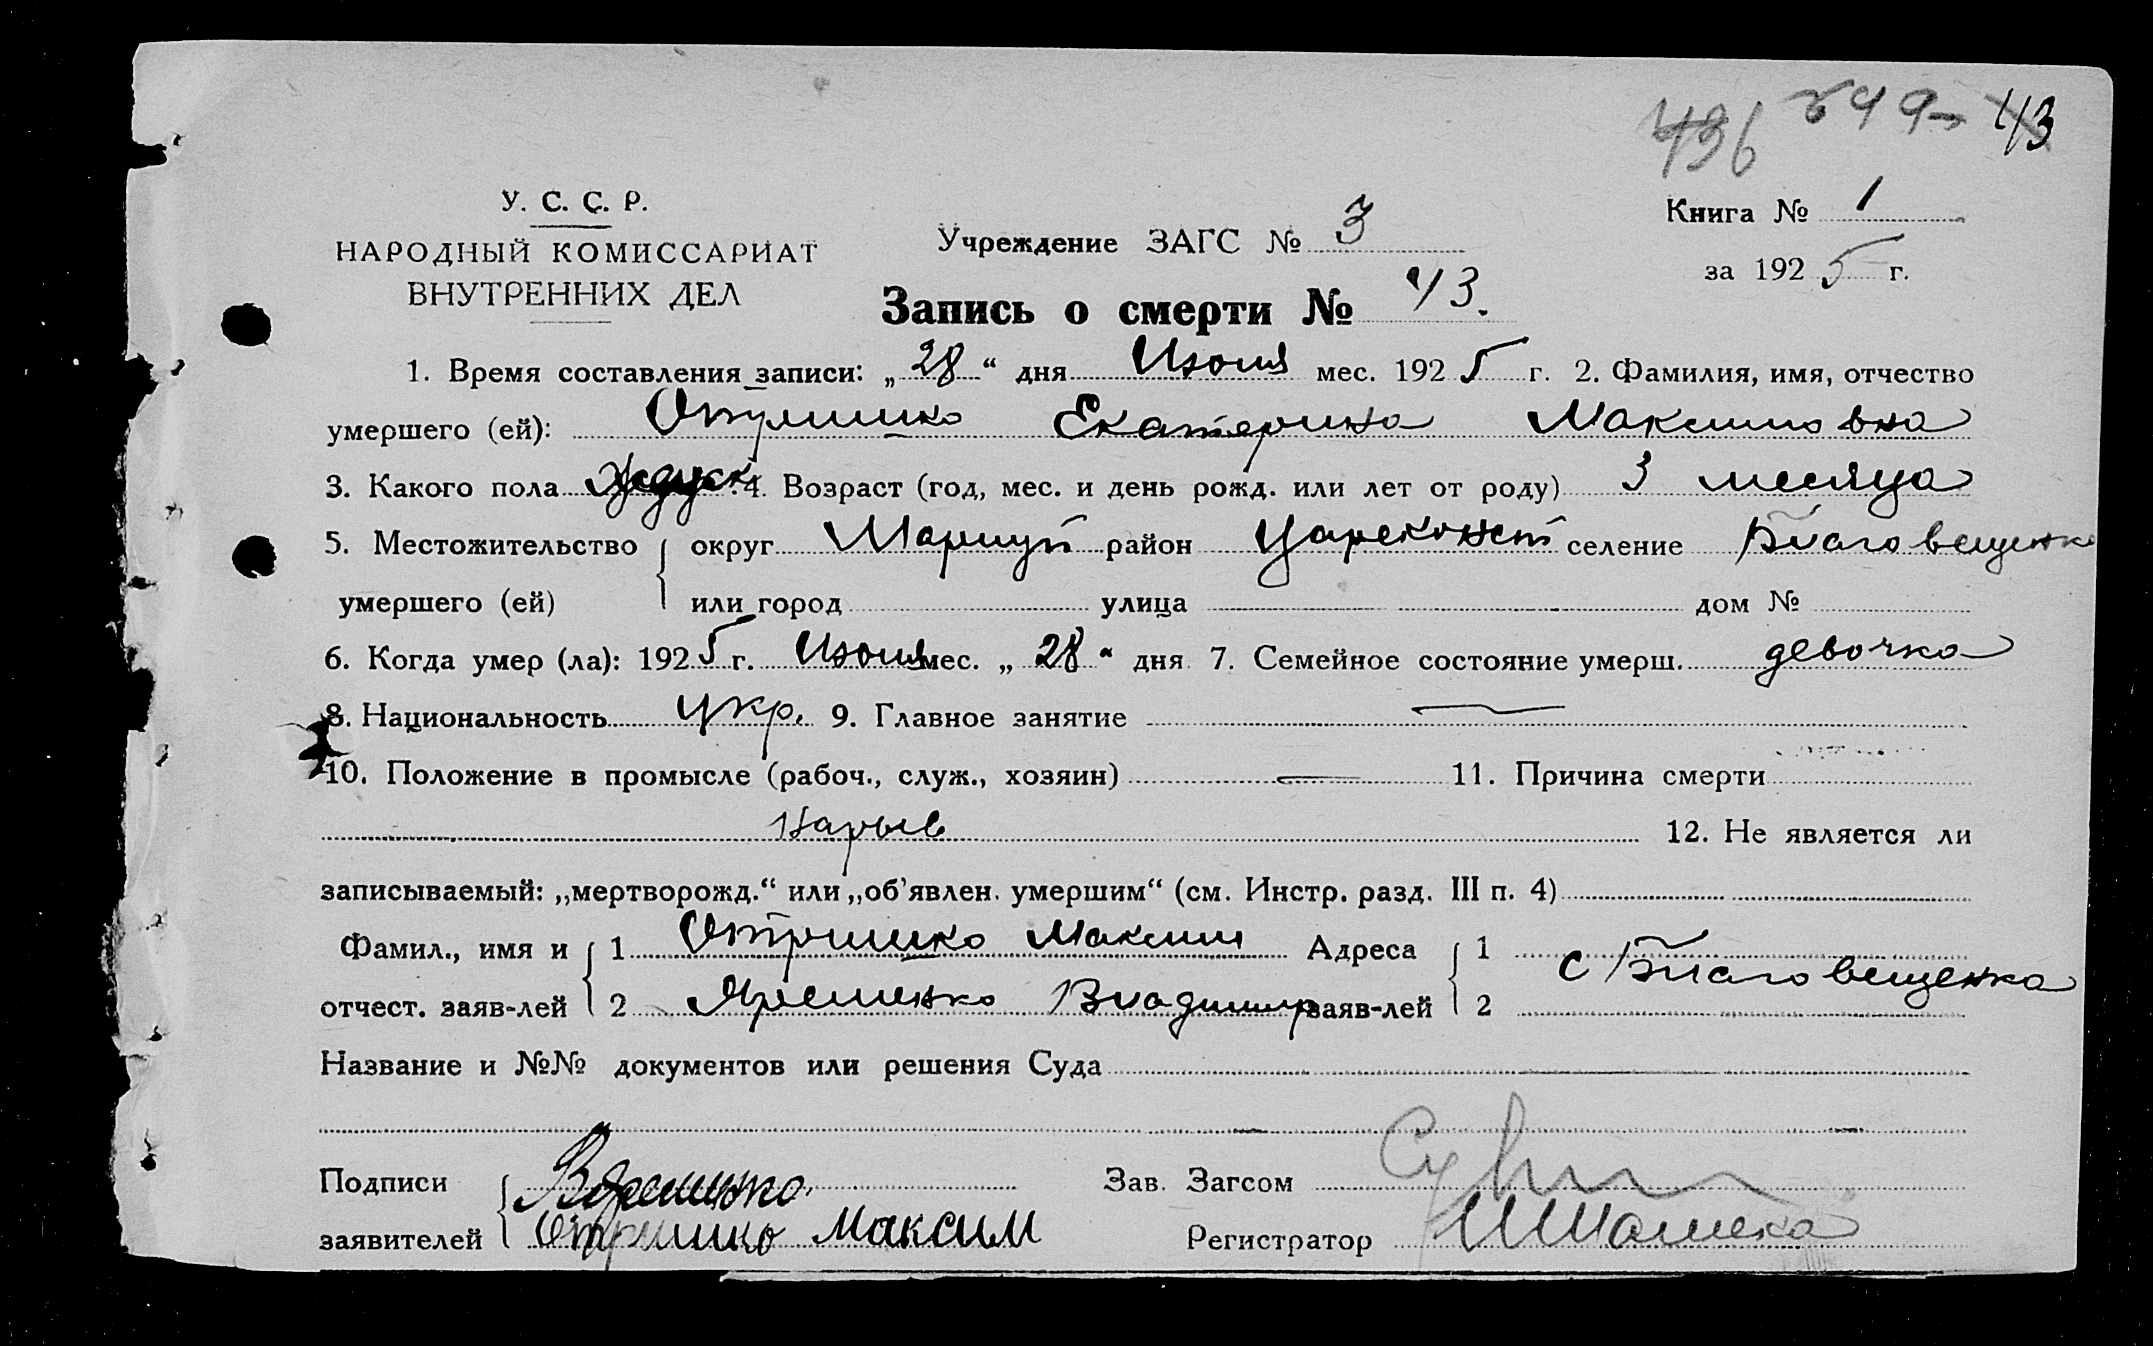 436 249 43
У. С. С. Р.
НАРОДНЫЙ КОМИССАРИАТ
ВНУТРЕННИХ ДЕЛ
Учреждение ЗАГС № 3
Книга № 1
за 1925 г.
Запись о смерти № 43.
1. Время составления записи: „28“ дня Июня мес. 1925 г. 2. Фамилия, имя, отчество
умершего (ей): Отришко Екатерина Максимовна
3. Какого пола 4. Возраст (год, мес. и день рожд. или лет от роду) 3 месяца
5. Местожительство { округ Мариуп район Цареконст селение Благовещенка
умершего (ей) или город улица дом №
6. Когда умер (ла): 1925 г. Июня мес. „28“ дня 7. Семейное состояние умерш. девочка
8. Национальность укр. 9. Главное занятие —
10. Положение в промысле (рабоч., служ., хозяин) — 11. Причина смерти
нарыв 12. Не является ли
записываемый: „мертворожд.“ или „об’явлен. умершим“ (см. Инстр. разд. III п. 4)
Фамил., имя и { 1 Отришко Максим Адреса { 1 с Благовещенка
отчест. заяв-лей 2 Яременко Владимир заяв-лей 2
Название и №№ документов или решения Суда
Подписи { ВЯременко Зав. Загсом
заявителей Отришко Максим Регистратор